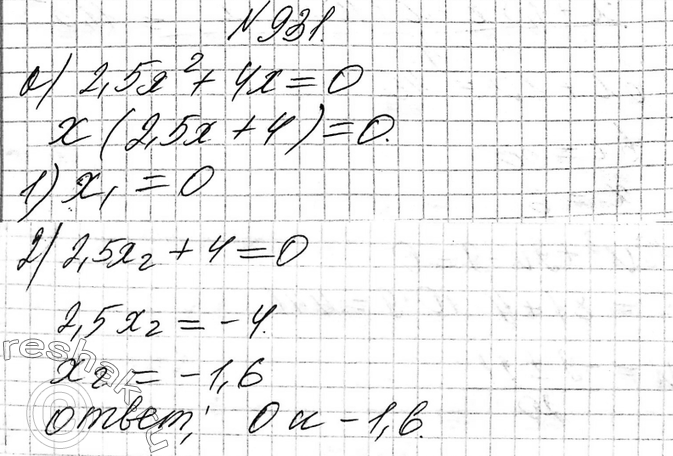 №931.
а) 2,5x² + 4x = 0
x (2,5x + 4) = 0.
1) x₁ = 0
2) 2,5x₂ + 4 = 0
2,5x₂ = -4.
x₂ = -1,6
ответ: 0 и -1,6.
reshak.ru